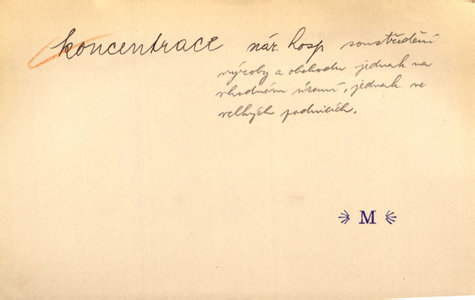 koncentrace nár. hosp soustředění
výroby a obchodu jednak na
vhodném území, jednak ve
velkých podnicích.
M